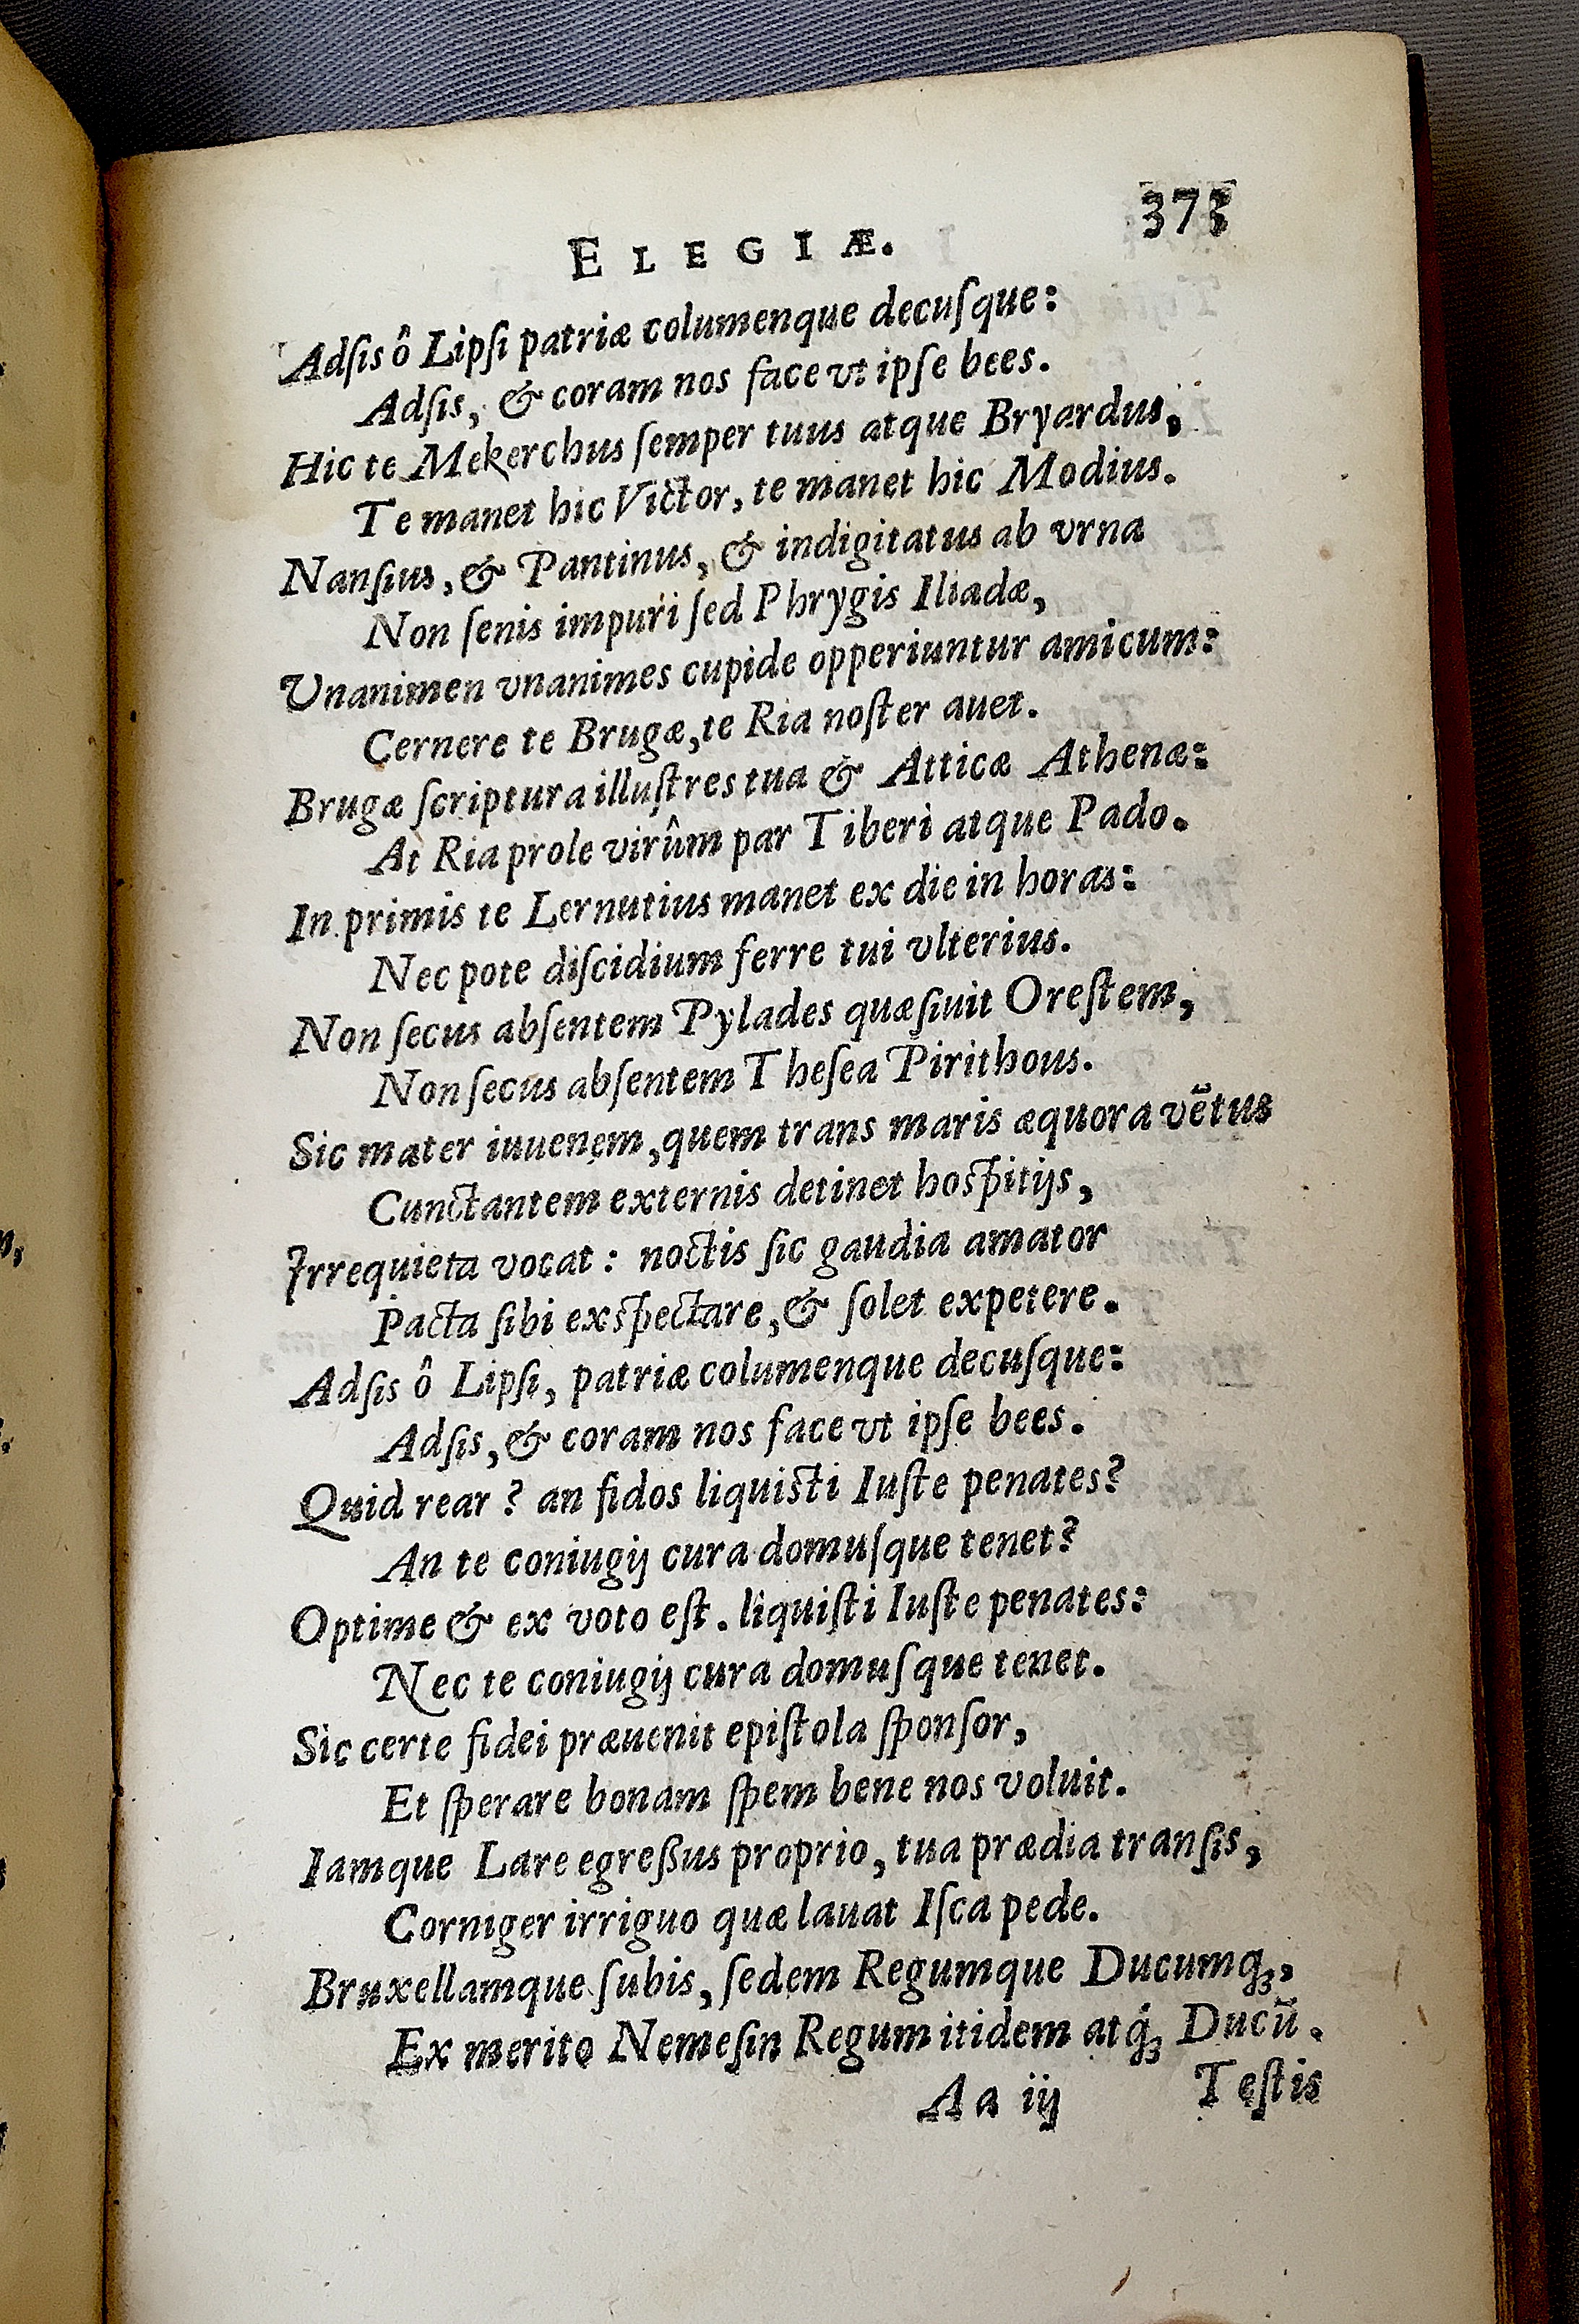 ELEGIÆ. 373
Adſis ô Lipſi patriæ columenque decuſque:
Adſis, & coram nos face vt ipſe bees.
Hic te Mekerchus ſemper tuus atque Bryardus,
Te manet hic Victor, te manet hic Modius.
Nanſius, & Pantinus, & indigitatus ab vrna
Non ſenis impuri ſed Phrygis Iliadæ,
Vnanimen vnanimes cupide opperiuntur amicum:
Cernere te Brugæ, te Ria noſter auet.
Brugæ ſcriptura illuſtres tua & Atticæ Athenæ:
At Ria prole virûm par Tiberi atque Pado.
In primis te Lernutius manet ex die in horas:
Nec pote diſcidium ferre tui vlterius.
Non ſecus abſentem Pylades quæſiuit Oreſtem,
Non ſecus abſentem Theſea Pirithous.
Sic mater iuuenem, quem trans maris æquora vẽtus
Cunctantem externis detinet hoſpitijs,
Irrequieta vocat: noctis ſic gaudia amator
Pacta ſibi exſpectare, & ſolet expetere.
Adſis ô Lipſi, patriæ columenque decuſque:
Adſis, & coram nos face vt ipſe bees.
Quid rear? an fidos liquiſti Iuſte penates?
An te coniugij cura domuſque tenet?
Optime & ex voto eſt. liquiſti Iuſte penates:
Nec te coniugij cura domuſque tenet.
Sic certe fidei præuenit epiſtola ſponſor,
Et ſperare bonam ſpem bene nos voluit.
Iamque Lare egreſſus proprio, tua prædia tranſis,
Corniger irriguo quæ lauat Iſca pede.
Bruxellamque ſubis, ſedem Regumque Ducumq́ꝫ,
Ex merito Nemeſin Regum itidem atq́ꝫ Ducũ.
Aa iij Teſtis